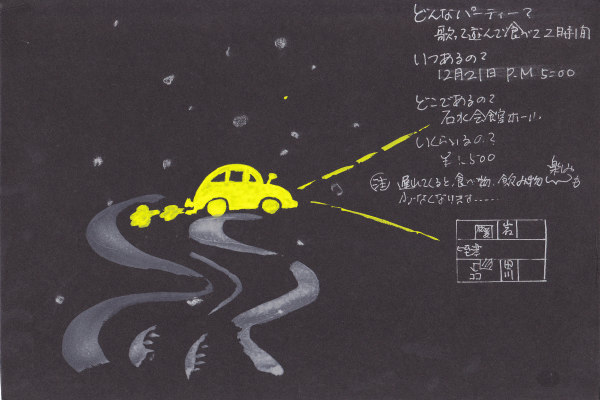 どんなパーティー?
歌って遊んで食べて2時間
いつあるの?
12月21日 P.M 5:00
どこであるの?
石水会館ホール.
いくらいるの?
¥1,500
注 遅れてくると、食べ物、飲み物 楽しみも
がなくなります.....
岩
三田